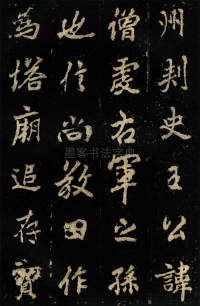 州刾史王公諱
僧虔右軍之孫
也信尚敬田作
為塔廟追存寶
墨客书法字典